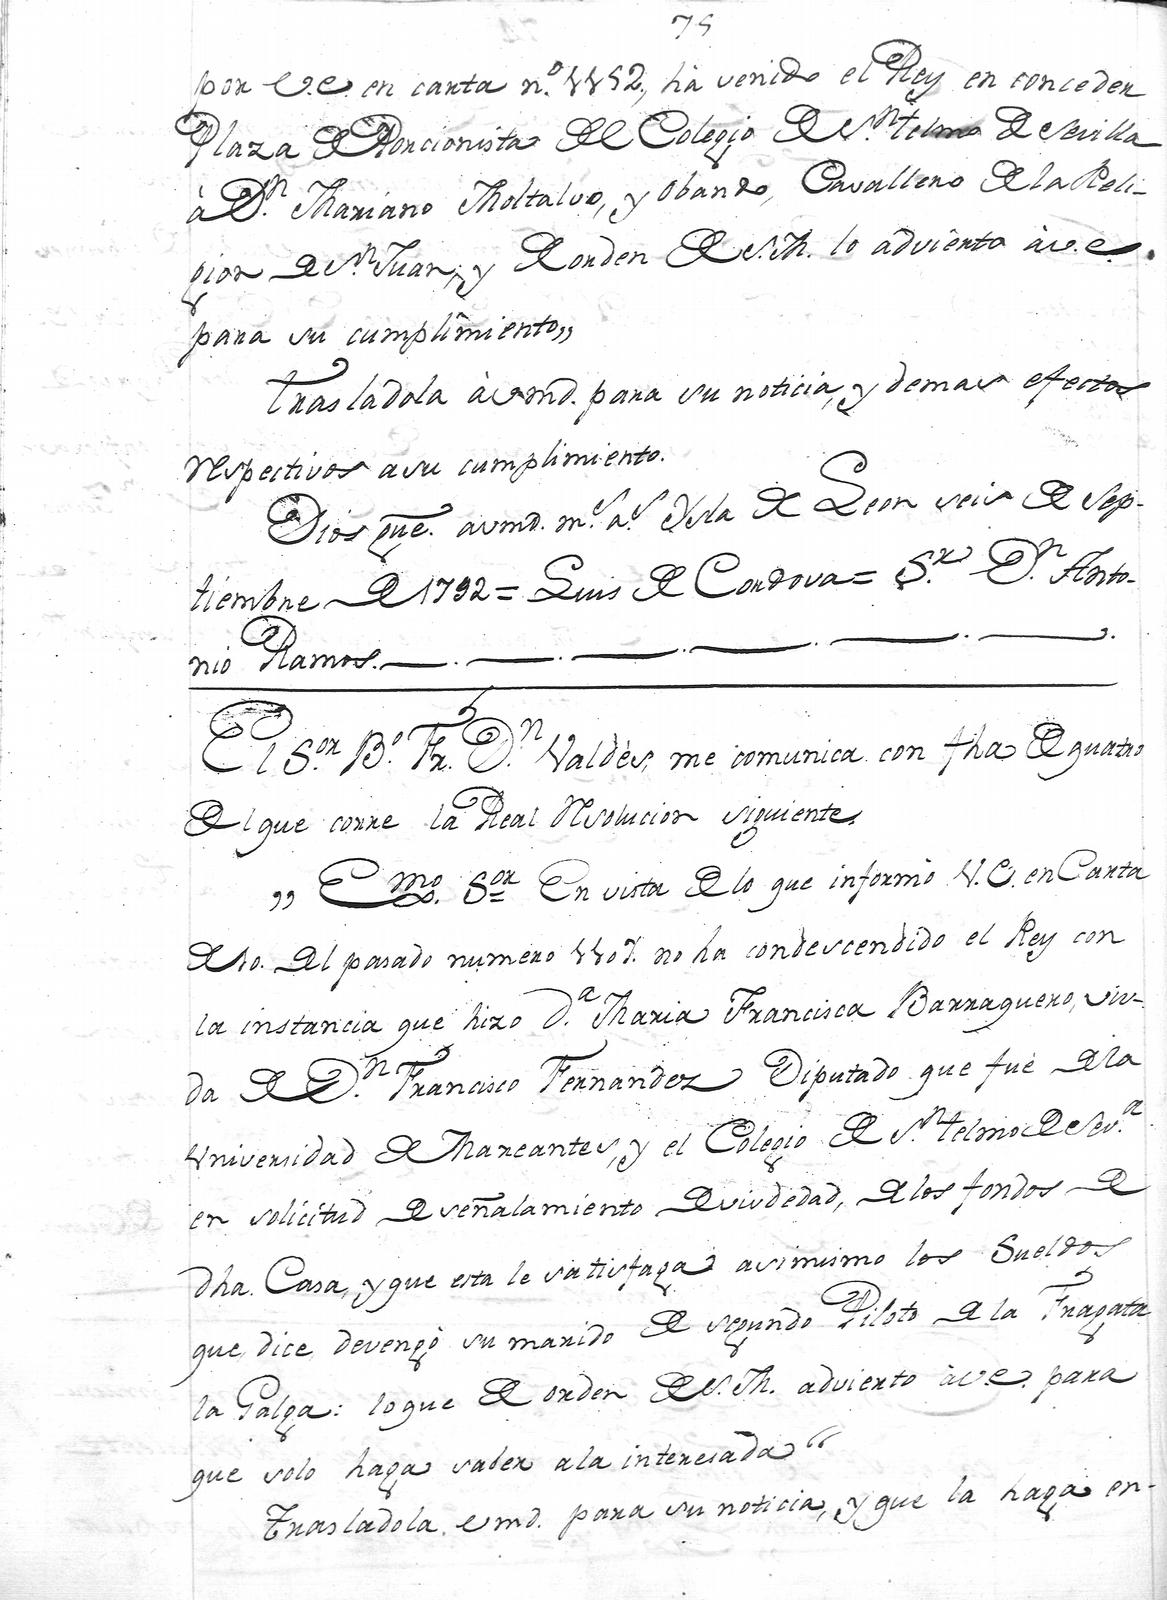 75
por V.E. en carta n.º 1152, ha venido el Rey en conceder
Plaza de Porcionista del Colegio de Sn. telmo de Sevilla
à Dn. Mariano Moltalvo, y Obando, Cavallero de la Reli-
gion de Sn. Juan, y de orden de S.M. lo advierto à v.e.
para su cumplimiento„
Trasladola à vmd. para su noticia, y demas efectos
respectivos a su cumplimiento.
Dios gue. a vmd. ms. as. Ysla de Leon seis de Sep-
tiembre de 1792 = Luis de Cordova = Sr. Dn. Anto-
nio Ramos.
El Sor. Bo. Fr. Dn. Valdès, me comunica con fha de quatro
del que corre la Real resolucion siguiente.
„ Exmo. Sor. En vista de lo que informò V.E. en Carta
de 10. del pasado numero 1107. no ha condescendido el Rey con
la instancia que hizo Da. Maria Francisca Barraguero, viu-
da de Dn. Francisco Fernandez Diputado que fuè de la
Universidad de Mareantes, y el Colegio de Sn. telmo de Seva.
en solicitud de señalamiento de viudedad, de los fondos de
dha. Casa, y que esta le satisfaga asimismo los Sueldos
que dice devengò su marido de segundo Piloto de la Fragata
la Galga: lo que de orden de S.M. advierto à v.e. para
que solo haga saber a la interesada “
Trasladola vmd. para su noticia, y que la haga en-